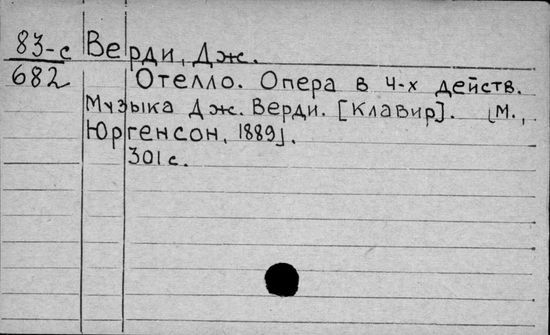 83-с Верди, Дж.
682 Отелло. Опера в 4-х действ.
Музыка Дж. Верди. [Клавир]. [М.,
Юргенсон, 1889].
301 с.